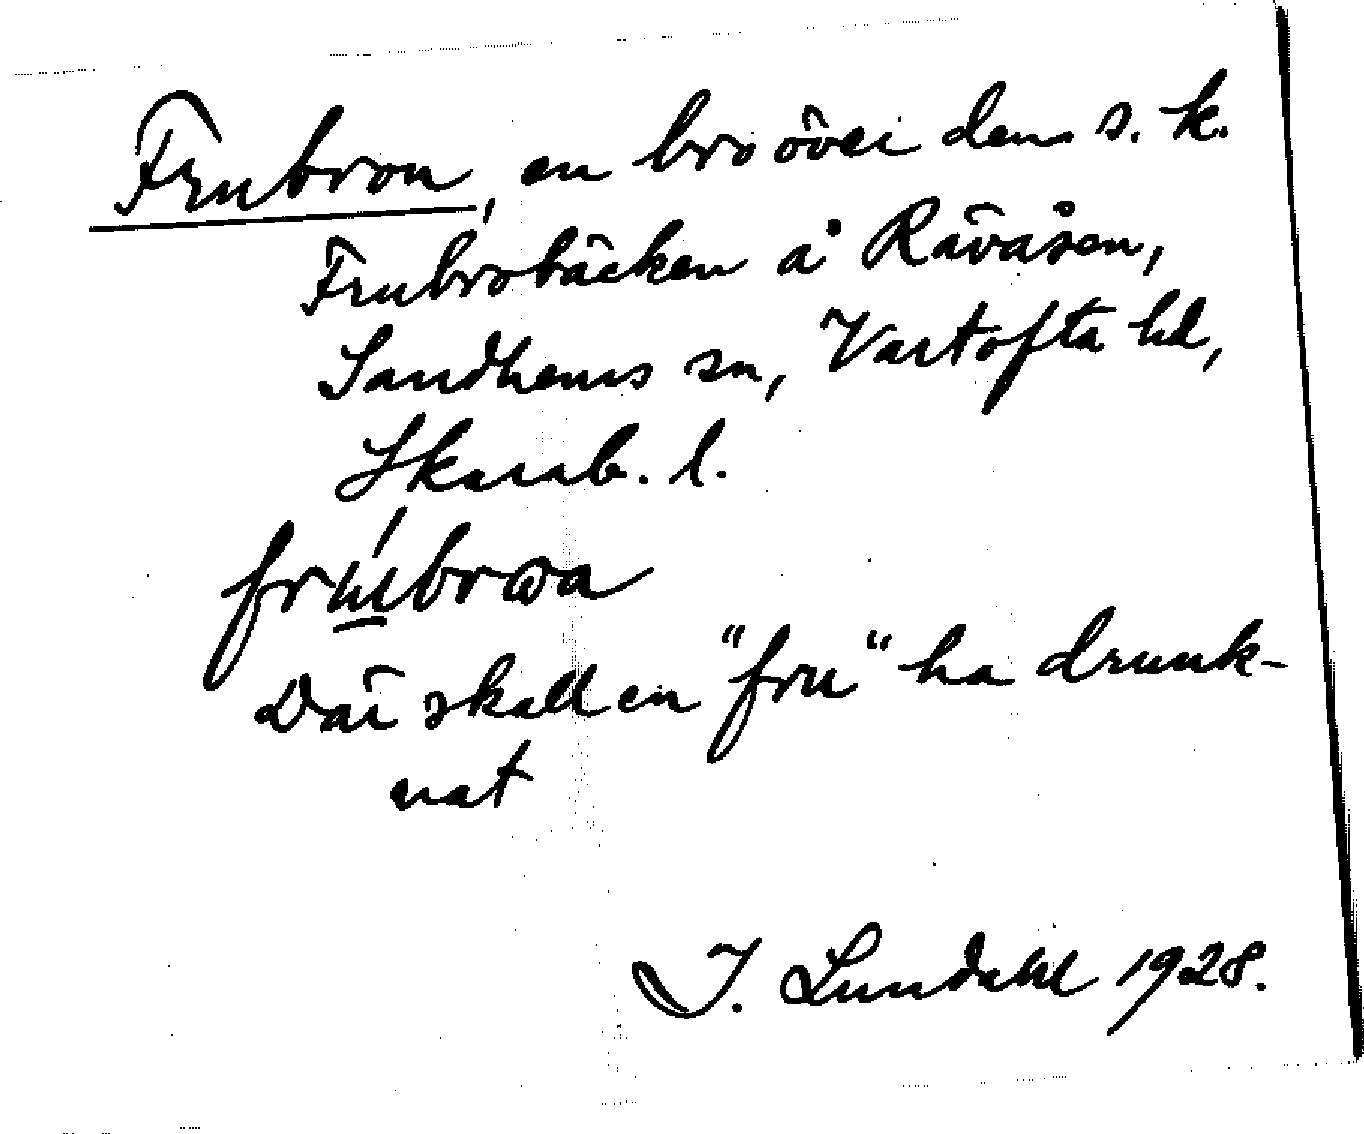 Frubron, en bro över den s. k.
Frubrobäcken å Råvåsen,
Sandhems sn, Vartofta hd,
Skarab. l.
Där skall en "fru" ha drunk-
nat
I. Lundahl 1928.